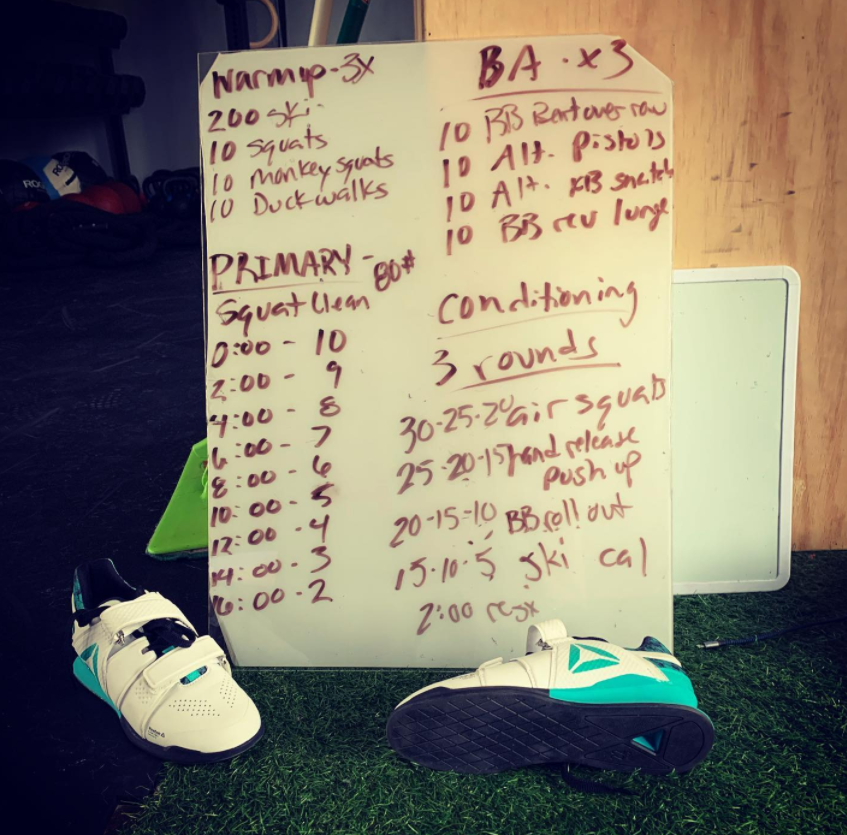 Warmup-3x
200 ski
10 squats
10 monkey squats
10 Duckwalks
PRIMARY - 80#
Squat Clean
0:00 - 10
2:00 - 9
4:00 - 8
6:00 - 7
8:00 - 6
10:00 - 5
12:00 - 4
14:00 - 3
16:00 - 2
BA · x3
10 BB Bent over row
10 Alt. Pistols
10 Alt. KB snatch
10 BB rev lunge
Conditioning
3 rounds
30-25-20 air squats
25-20-15 hand release
push up
20-15-10 BB roll out
15-10-5 ski cal
2:00 rest